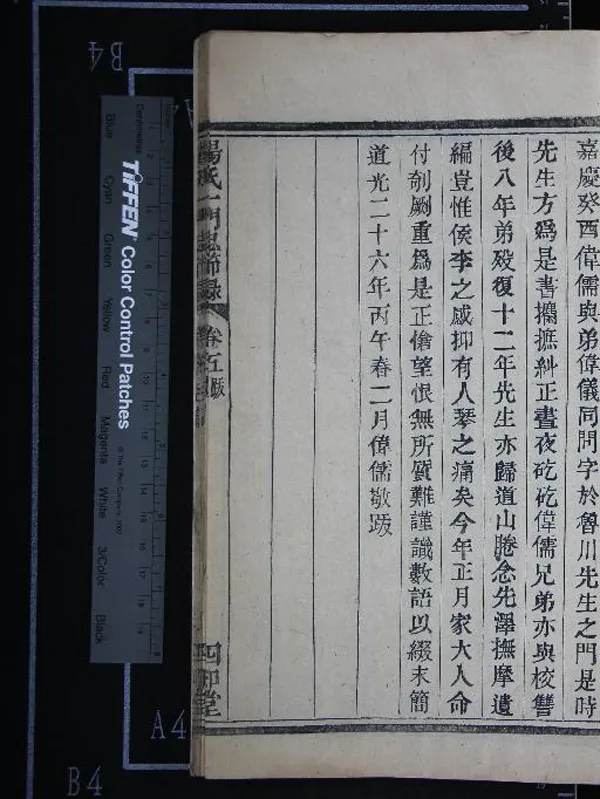 嘉慶癸酉偉儒與弟偉儀同問字於魯川先生之門是時
先生方爲是書攟摭糾正晝夜矻矻偉儒兄弟亦與校讐
後八年弟歿復十二年先生亦歸道山睠念先澤撫摩遺
編豈惟侯李之感抑有人琴之痛矣今年正月家大人命
付剞劂重爲是正愴望恨無所質難謹識數語以綴末簡
道光二十六年丙午春二月偉儒敬跋
楊氏一門忠節錄
卷五 跋
四知堂
B4
A4
Centimetres
TIFFEN® Color Control Patches
© The Tiffen Company, 2007
Blue
Cyan
Green
Yellow
Red
Magenta
White
3/Color
Black
A4
B4